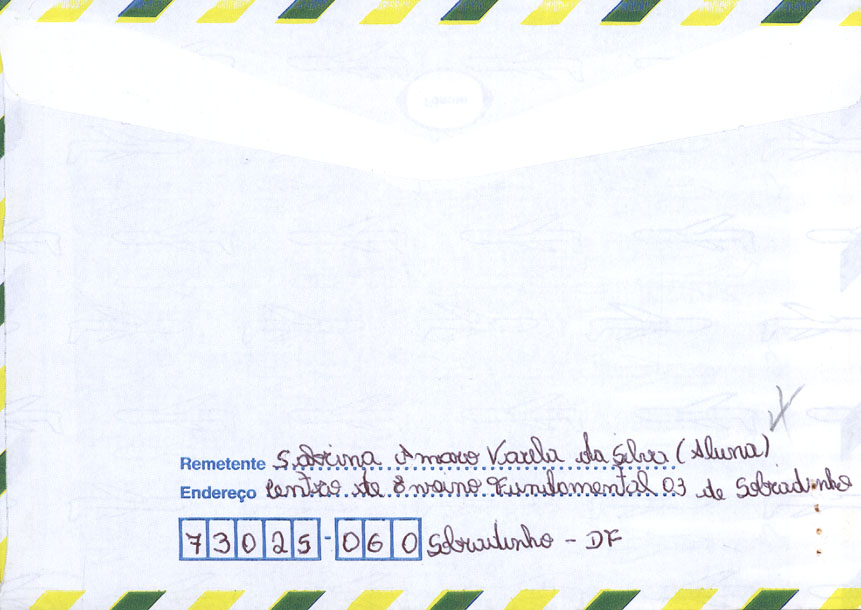 Remetente Sabrina Amaro Varela da Silva (Aluna)
Endereço Centro de Ensino Fundamental 03 de Sobradinho
73025-060 Sobradinho - DF